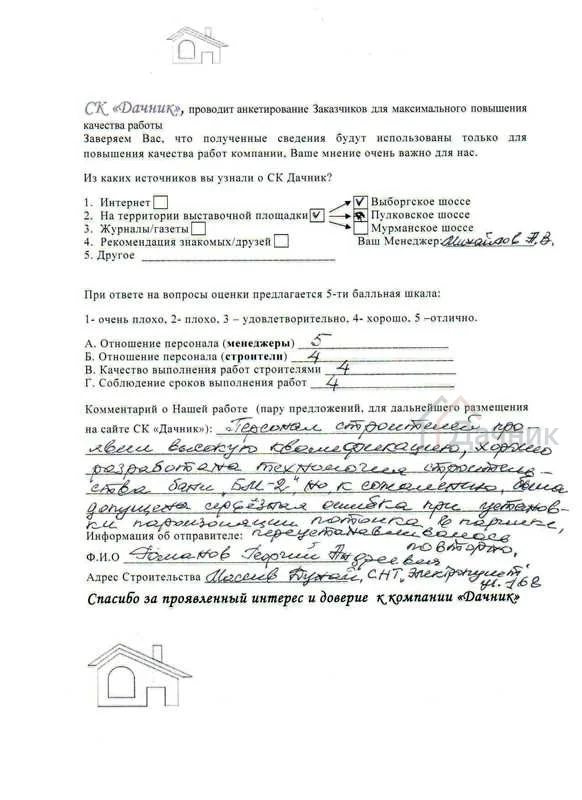 СК «Дачник», проводит анкетирование Заказчиков для максимального повышения
качества работы
Заверяем Вас, что полученные сведения будут использованы только для
повышения качества работ компании, Ваше мнение очень важно для нас.
Из каких источников вы узнали о СК Дачник?
1. Интернет
Выборгское шоссе
2. На территории выставочной площадки
Пулковское шоссе
3. Журналы/газеты
Мурманское шоссе
4. Рекомендация знакомых/друзей
Ваш Менеджер: Михайлов А.В.
5. Другое
При ответе на вопросы оценки предлагается 5-ти балльная шкала:
1- очень плохо, 2- плохо, 3 – удовлетворительно, 4- хорошо, 5 –отлично.
А. Отношение персонала (менеджеры) 5
Б. Отношение персонала (строители) 4
В. Качество выполнения работ строителями 4
Г. Соблюдение сроков выполнения работ 4
Комментарий о Нашей работе (пару предложений, для дальнейшего размещения
на сайте СК «Дачник»): Персонал строителей про
явил высокую квалификацию, хорошо
разработана технология строитель-
ства бани „БМ-2“, но к сожалению, была
допущена серьёзная ошибка при установ-
ки пароизоляции потолка в парилке,
Информация об отправителе: переустанавливалось
повторно.
Ф.И.О Романов Георгий
Адрес Строительства Массив Дунай, СНТ „
ул. 168
Спасибо за проявленный интерес и доверие к компании «Дачник»
Дачник